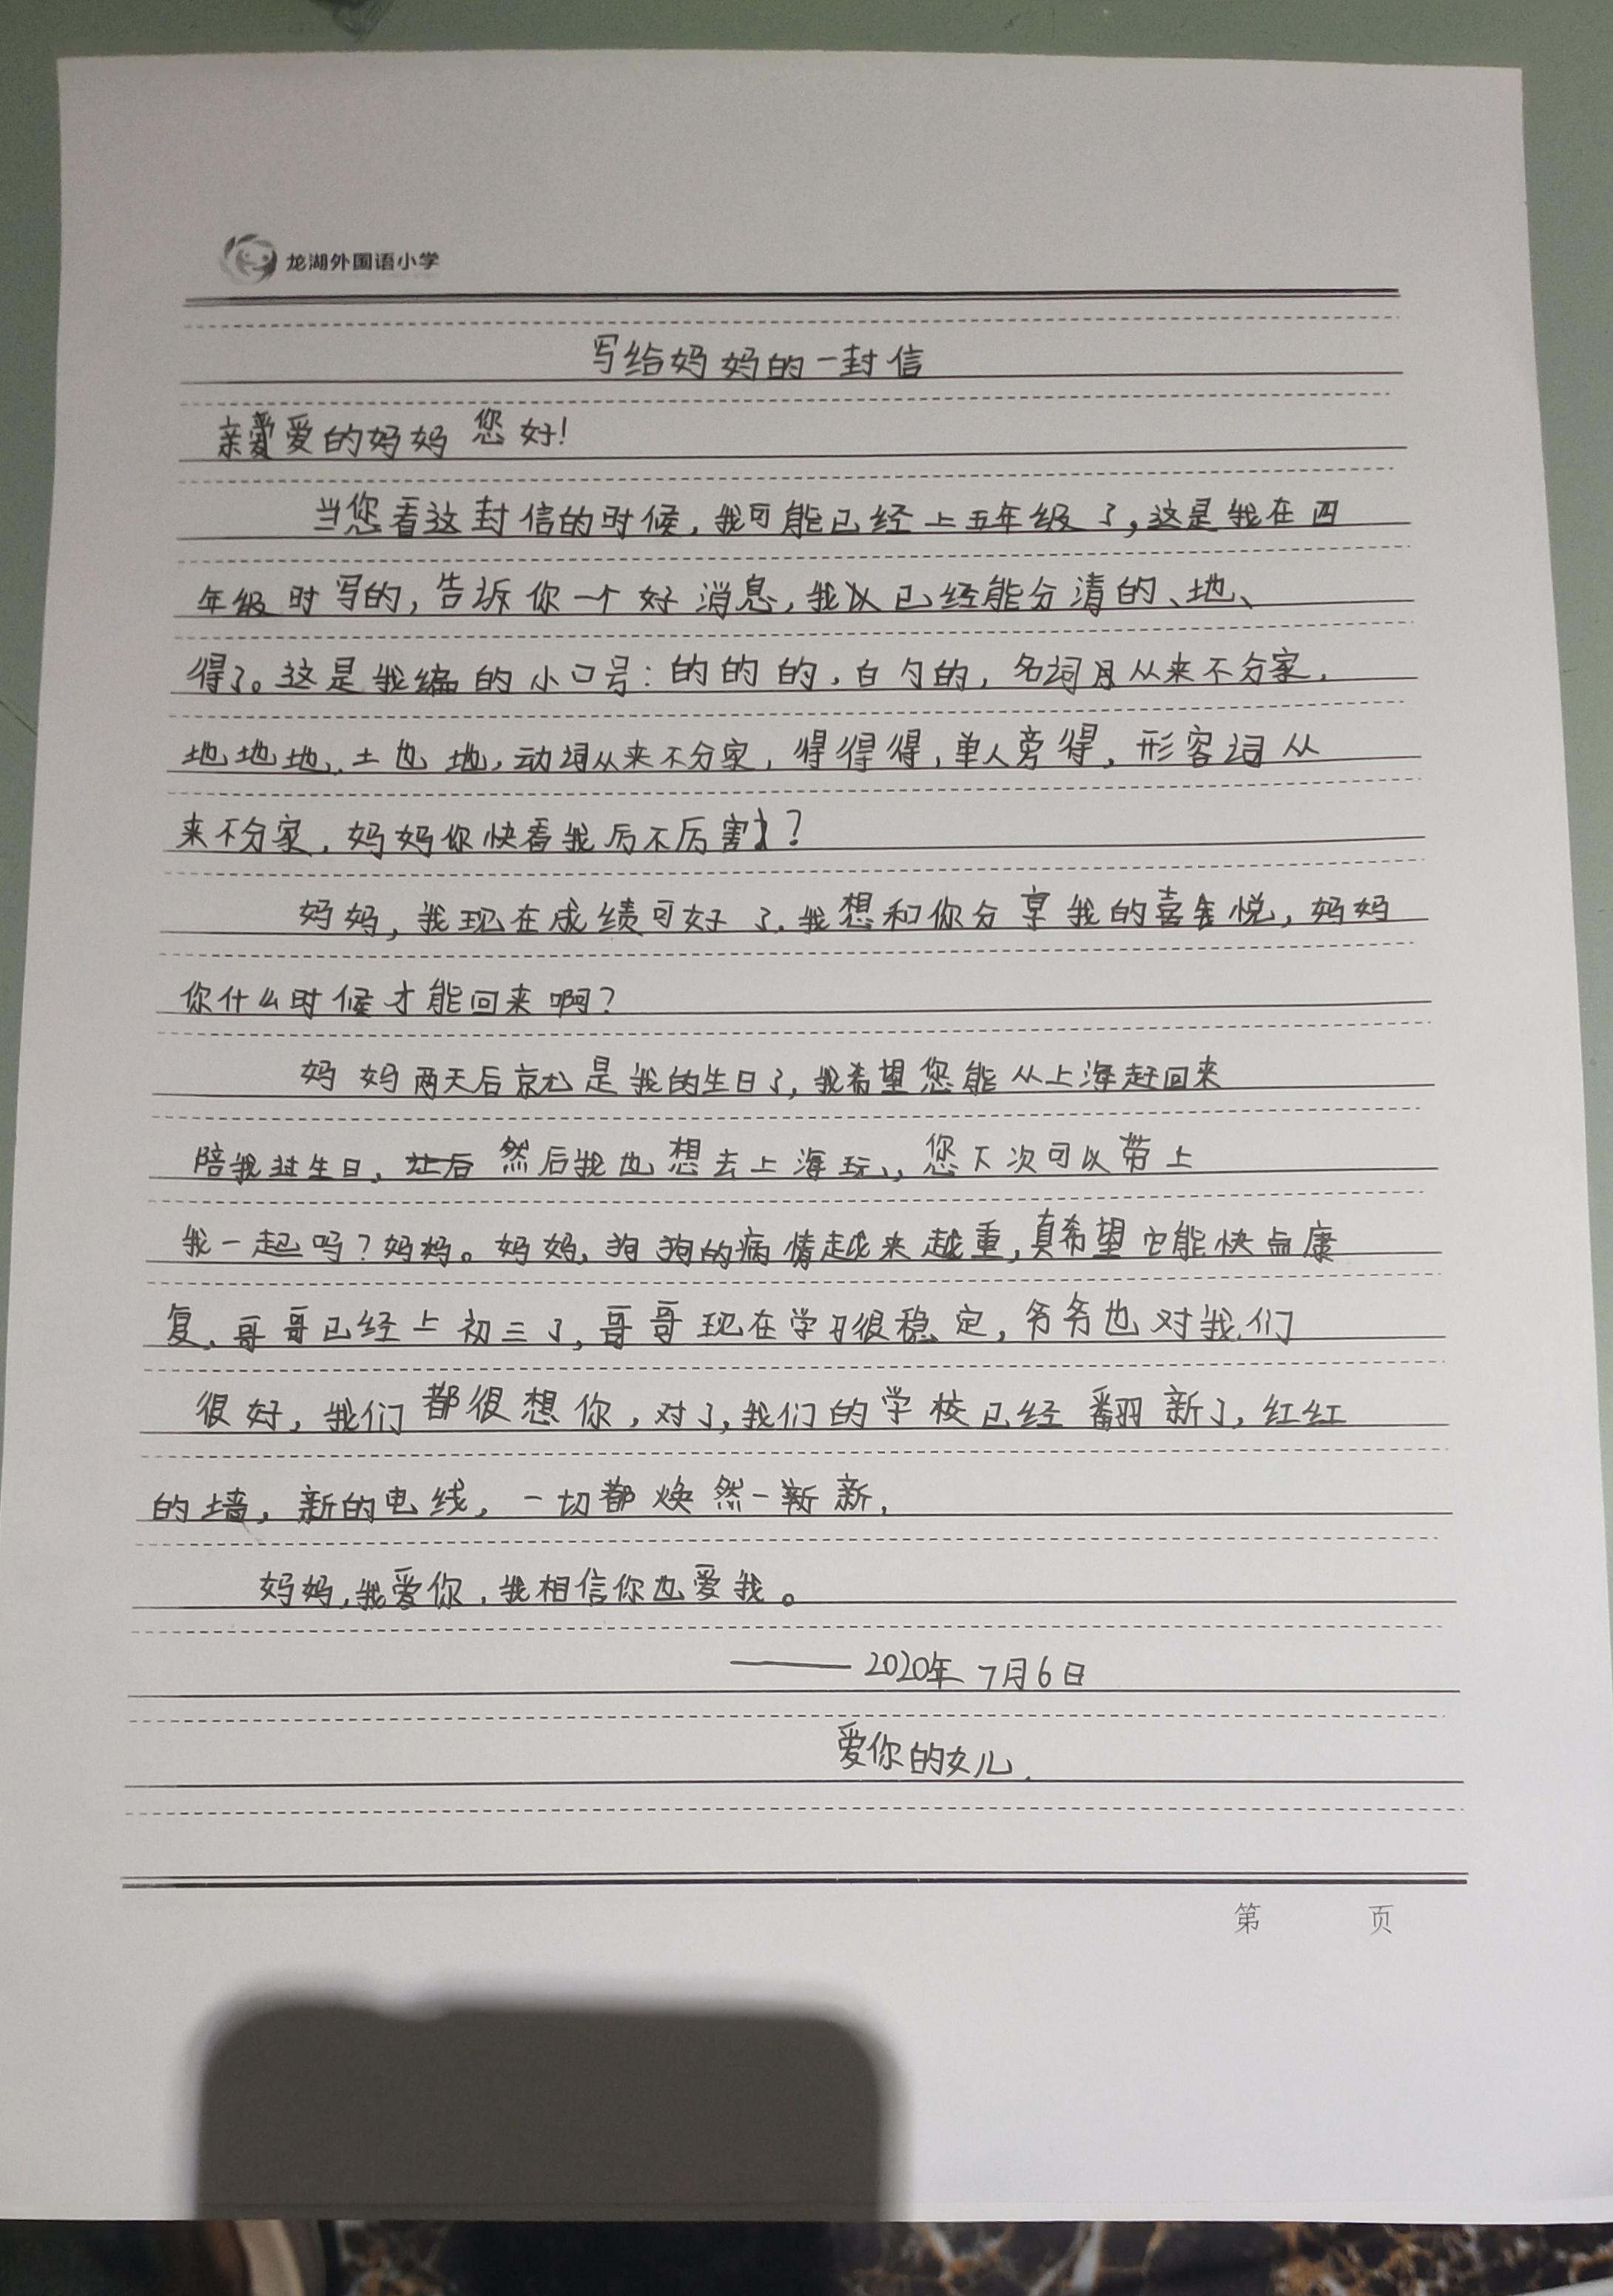 龙湖外国语小学
写给妈妈的一封信
亲爱的妈妈 您好!
当您看这封信的时候,我可能已经上五年级了,这是我在四
年级时写的,告诉你一个好消息,我以已经能分清的、地、
得了。这是我编的小口号:的的的,白勺的,名词月从来不分家,
地地地,土也地,动词从来不分家,得得得,单人旁得,形容词从
来不分家,妈妈你快看我厉不厉害?
妈妈,我现在成绩可好了.我想和你分享我的喜悦,妈妈
你什么时候才能回来啊?
妈妈两天后就是我的生日了,我希望您能从上海赶回来
陪我过生日,然后我也想去上海玩,您下次可以带上
我一起吗?妈妈。妈妈,狗狗的病情越来越重,真希望它能快点康
复,哥哥已经上初三了,哥哥现在学习很稳定,爷爷也对我们
很好,我们都很想你,对了,我们的学校已经翻新了,红红
的墙,新的电线,一切都焕然一新.
妈妈,我爱你,我相信你也爱我。
——2020年7月6日
爱你的女儿.
第 页